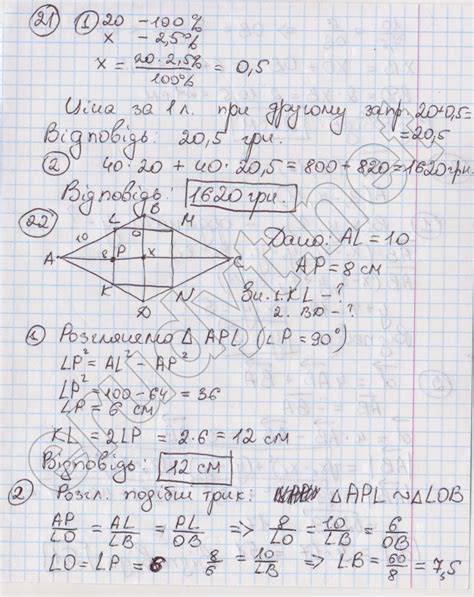 21 1 20 - 100%
x - 2,5%
x = 20·2,5% / 100% = 0,5
Ціна за 1 л. при другому запр. 20+0,5=
=20,5
Відповідь: 20,5 грн.
2 40·20 + 40·20,5 = 800 + 820 = 1620 грн.
Відповідь: 1620 грн.
22
B
L O M
10
A 8 P x C
K N
D
Дано: AL = 10
AP = 8 см
Зн. 1. KL - ?
2. BD - ?
1 Розглянемо △ APL (∠P = 90°)
LP² = AL² - AP²
LP² = 100 - 64 = 36
LP = 6 см
KL = 2LP = 2·6 = 12 см
Відповідь: 12 см
2 Розгл. подібні трик: △APL ~ △LOB
AP/LO = AL/LB = PL/OB => 8/LO = 10/LB = 6/OB
LO = LP = 6 8/6 = 10/LB => LB = 60/8 = 7,5